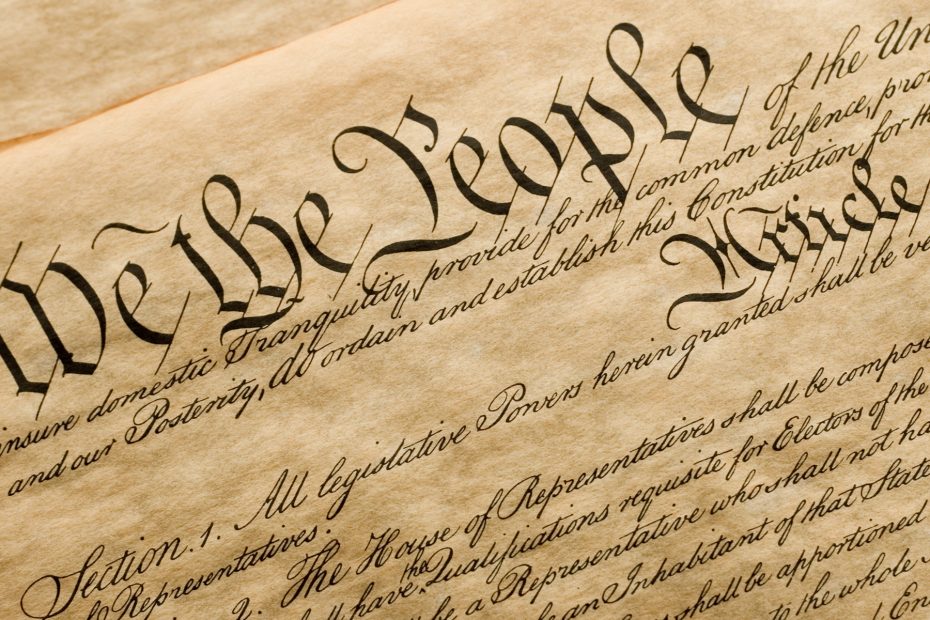 We the People of the Un
insure domestic Tranquility, provide for the common defence, pro
and our Posterity, do ordain and establish this Constitution for th
Article
Section. 1. All legislative Powers herein granted shall be ve
of Representatives.
2. The House of Representatives shall be compose
have the Qualifications requisite for Electors of the
be a Representative who shall not ha
an Inhabitant of that State
shall be apportioned
to the whole